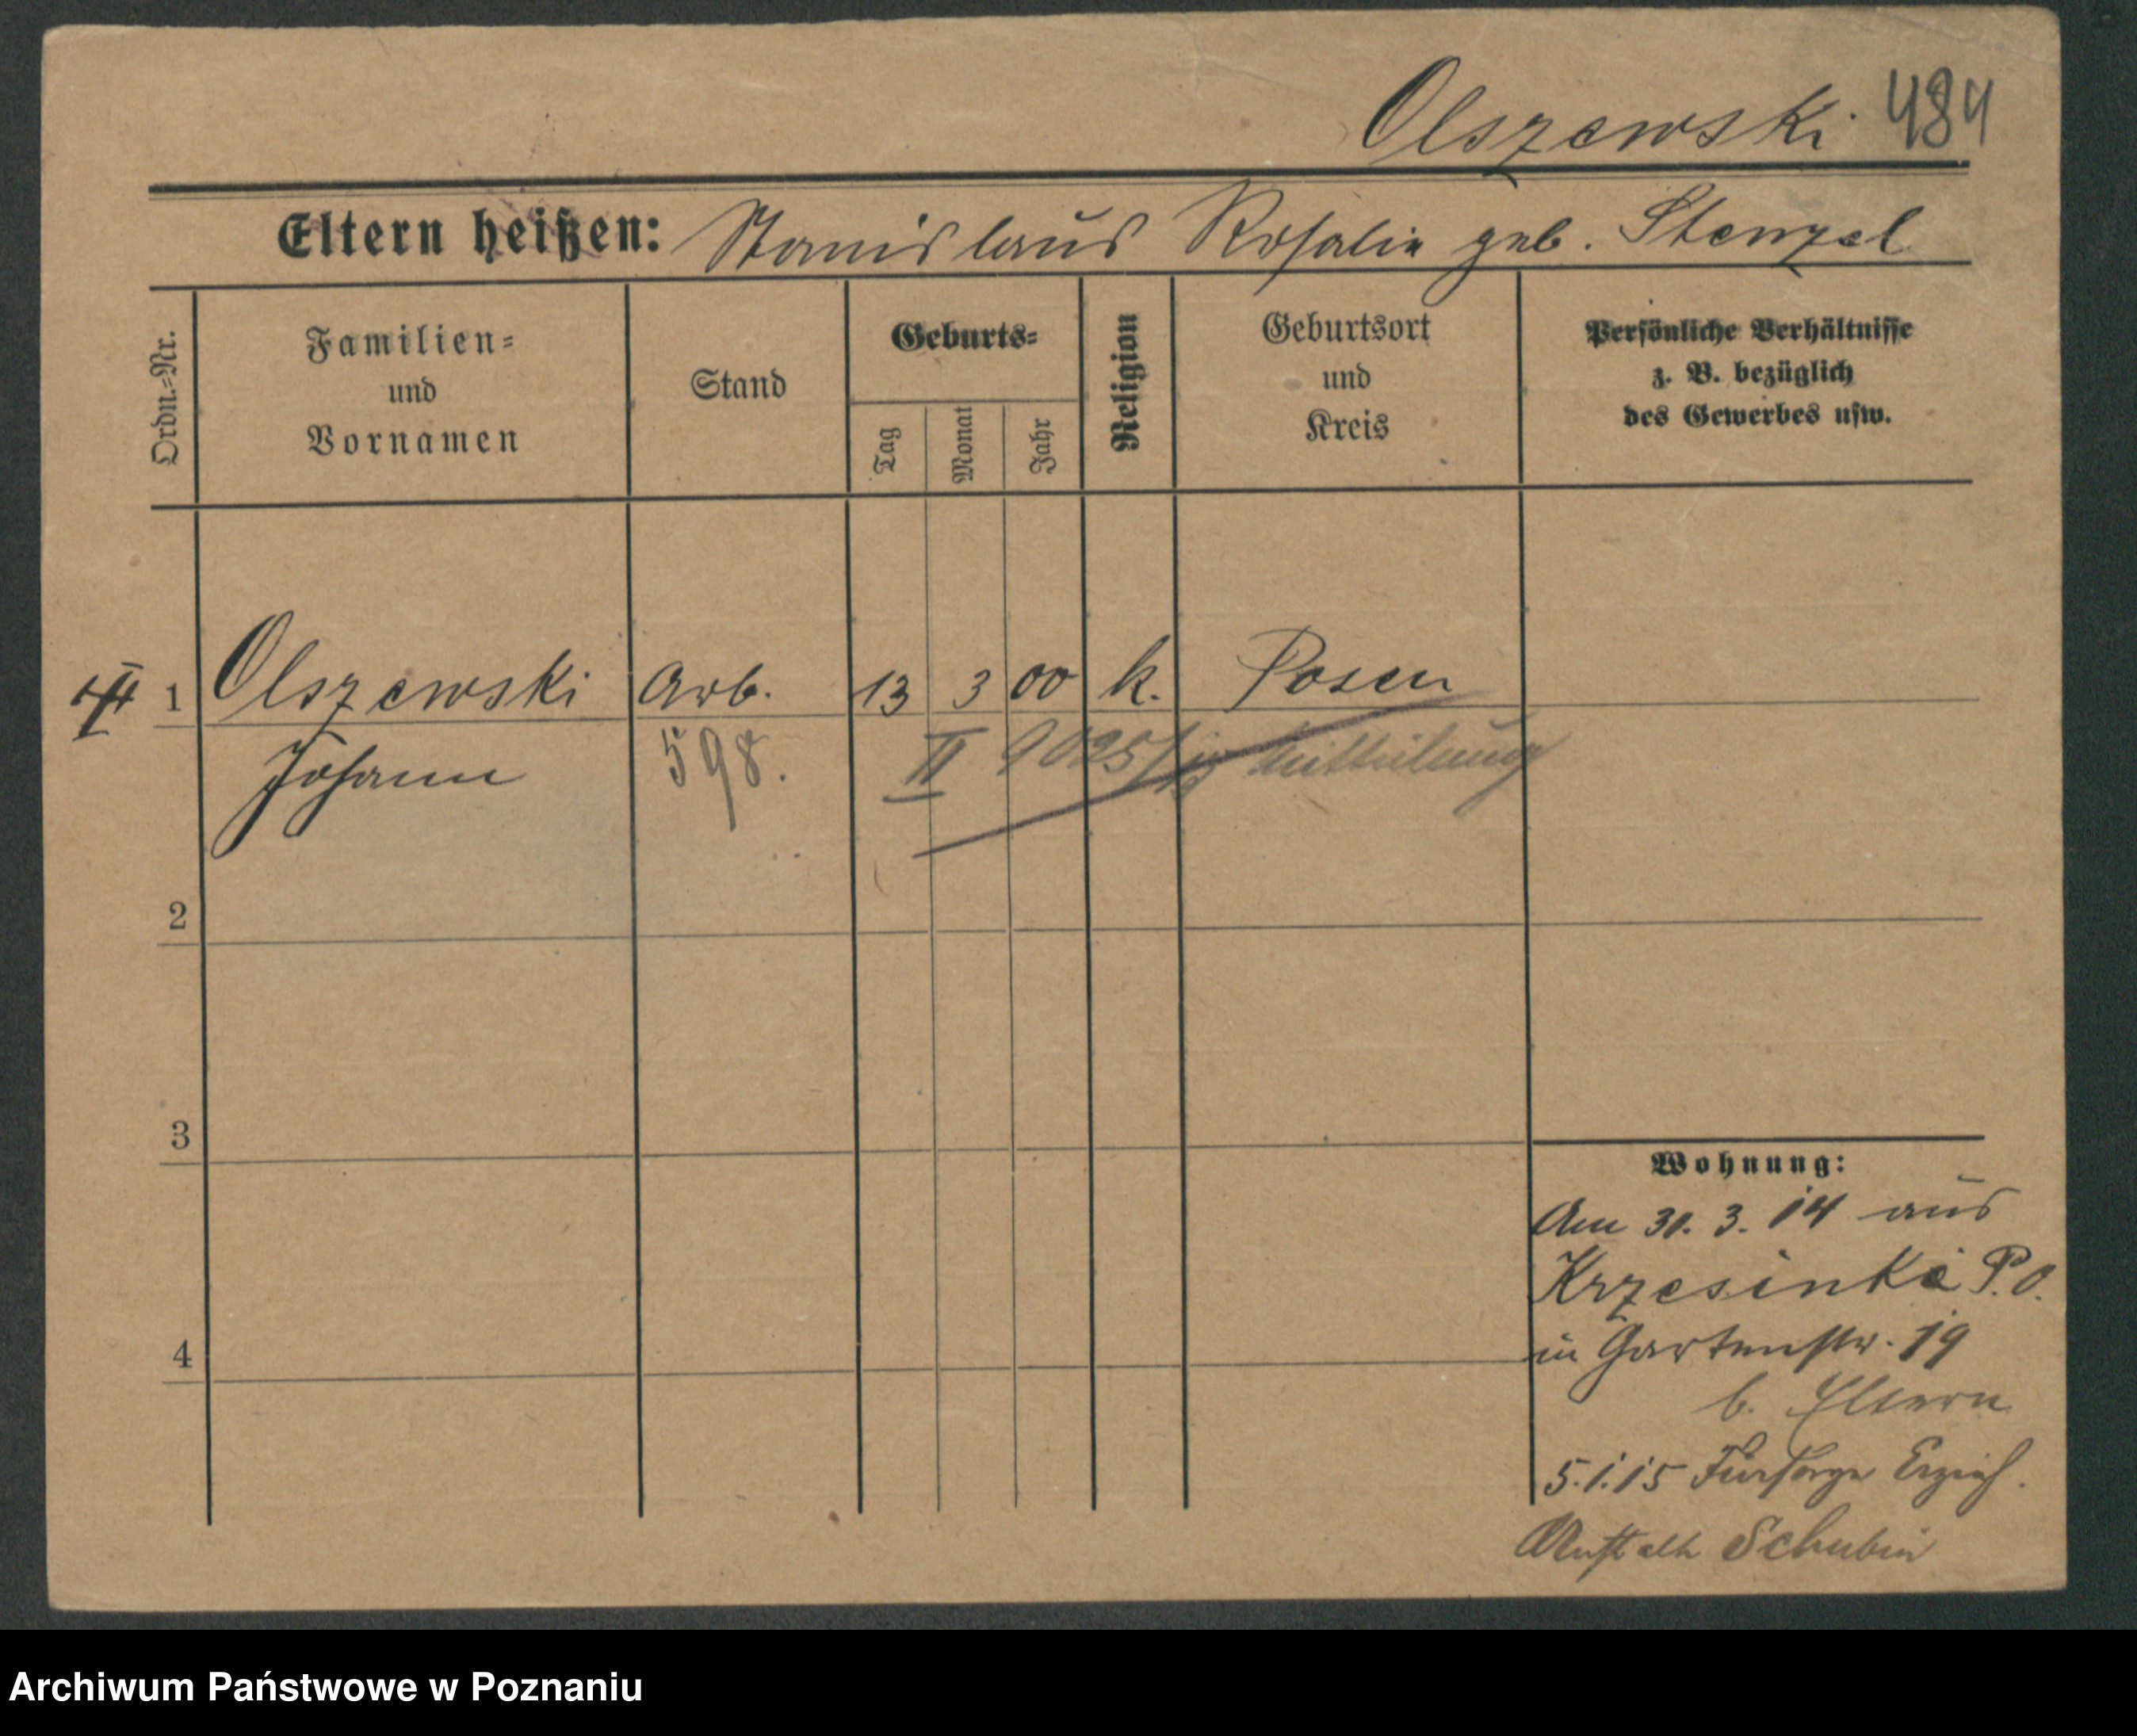 Olszewski 484
Eltern heißen: Stanislaus Rosalie geb. Stenzel
Ordn.=Nr.
Familien=
und
Vornamen
Stand
Geburts=
Tag
Monat
Jahr
Religion
Geburtsort
und
Kreis
Persönliche Verhältnisse
z. B. bezüglich
des Gewerbes usw.
1 Olszewski Arb. 13 3 00 k. Posen
Johann 598. II Mitteilung
2
3
Wohnung:
Am 31. 3. 14 aus
Krzesinki P. O.
4 in Gartenstr. 19
b. Eltern
5.1.15 Fürsorge Erzieh.
Anstalt Schubin
Archiwum Państwowe w Poznaniu